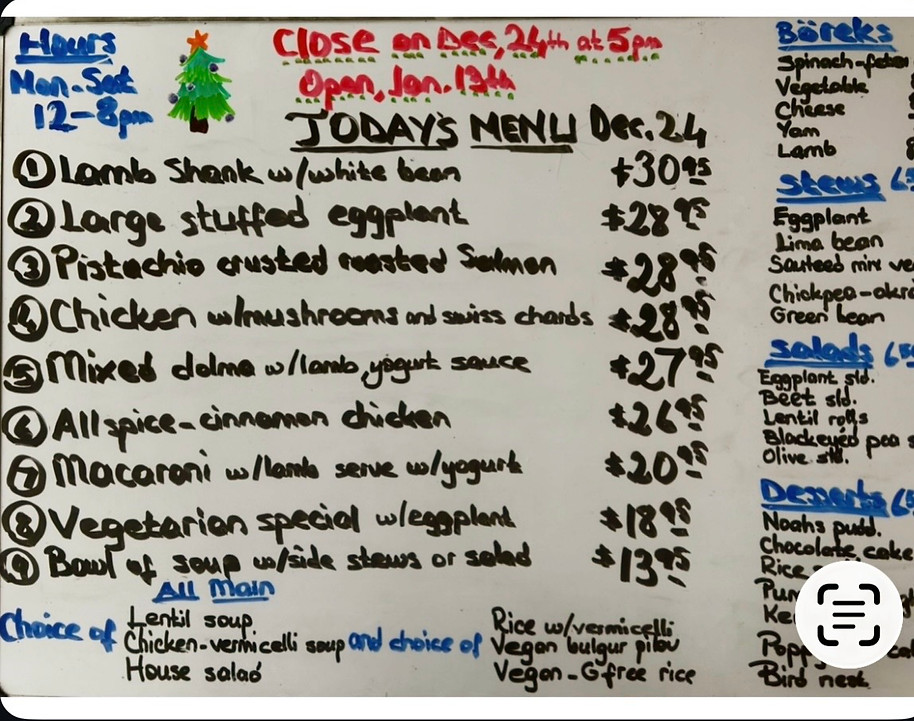 Hours
Mon-Sat
12-8pm
Close on Dec, 24th at 5pm
Open, Jan. 13th
TODAY'S MENU Dec. 24
1 Lamb Shank w/white bean $30.95
2 Large stuffed eggplant $28.95
3 Pistachio crusted roasted Salmon $28.95
4 Chicken w/mushrooms and swiss chards $28.95
5 Mixed dolma w/lamb, yogurt sauce $27.95
6 All spice-cinnamon chicken $26.95
7 Macaroni w/lamb serve w/yogurt $20.95
8 Vegetarian special w/eggplant $18.95
9 Bowl of soup w/side stews or salad $13.95
All Main
Choice of
Lentil soup
Chicken-vermicelli soup
House salad
and choice of
Rice w/vermicelli
Vegan bulgur pilav
Vegan-Gfree rice
Böreks
Spinach-feta
Vegetable
Cheese
Yam
Lamb
Stews
Eggplant
Lima bean
Sauteed mix
Chickpea-okra
Green bean
Salads
Eggplant sld.
Beet sld.
Lentil rolls
Blackeyed pea
Olive sld.
Desserts
Noahs pudd.
Chocolate cake
Rice
Bird nest